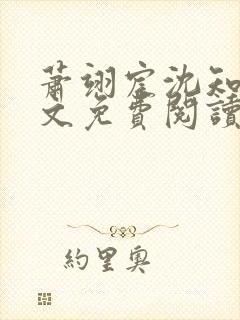 蕭翊宸沈知
文免費閱讀
約里奧